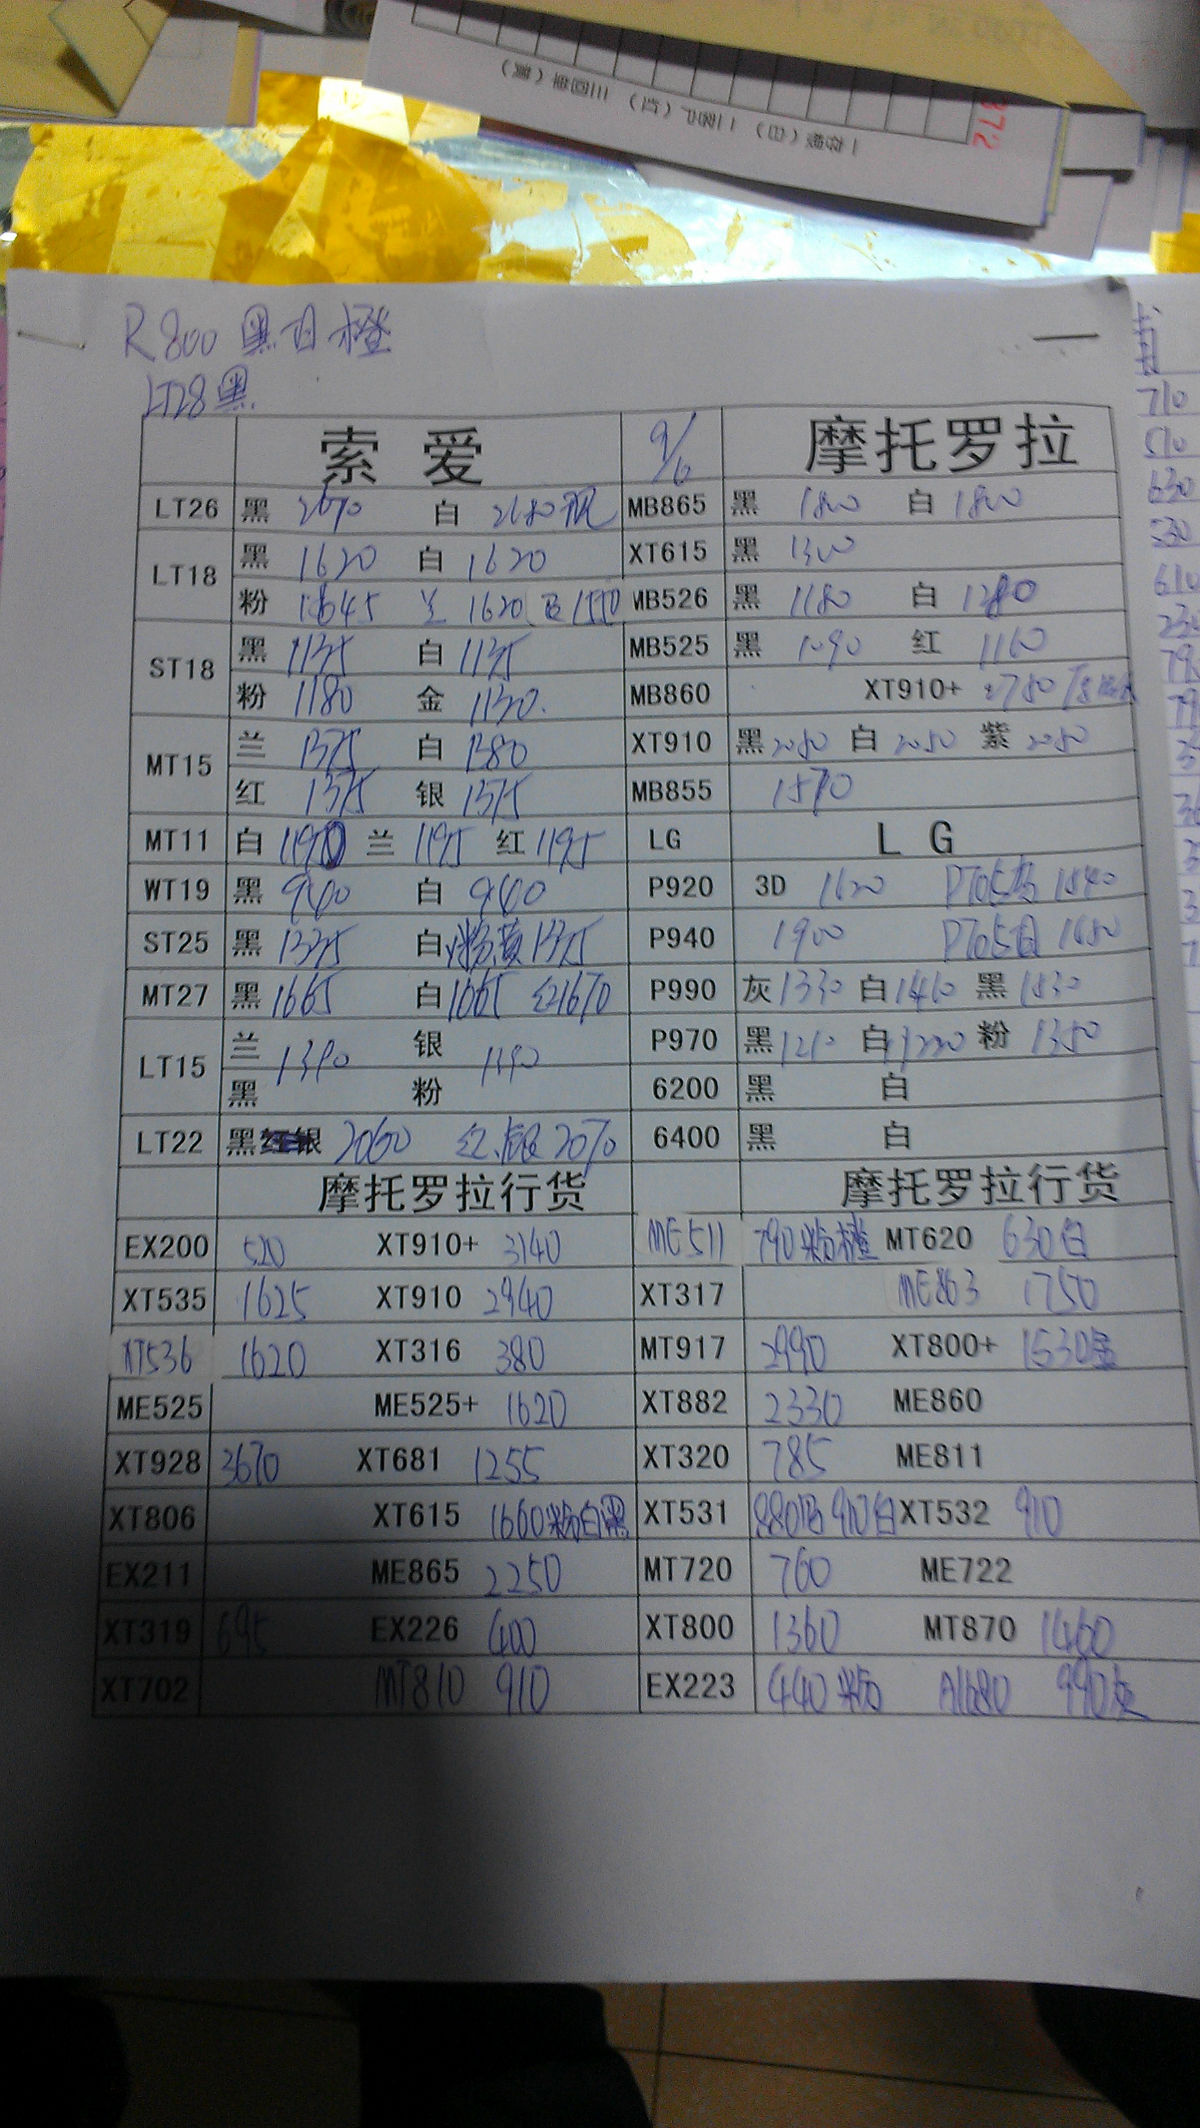 372
一存根（白） 二客户（红） 三回单（黄）
R800 黑白橙
LT28黑
索 爱 9/6 摩托罗拉
LT26 黑 2670 白 2680 MB865 黑 1800 白 1800
LT18 黑 1620 白 1620 XT615 黑 1300
粉 1645 兰 1620 1550 MB526 黑 1180 白 1280
ST18 黑 1135 白 1135 MB525 黑 1090 红 1160
粉 1180 金 1130. MB860 XT910+ 2780
MT15 兰 1375 白 1380 XT910 黑 2050 白 2050 紫 2050
红 1375 银 1375 MB855 1570
MT11 白 兰 1195 红 1195 LG L G
WT19 黑 940 白 940 P920 3D 1620 1840
ST25 黑 1335 白 粉黄 1375 P940 1900 1680
MT27 黑 1665 白 1665 红1670 P990 灰 1330 白 1410 黑 1330
LT15 兰 1390 银 1390 P970 黑 1210 白 1220 粉 1350
黑 粉 6200 黑 白
LT22 黑 2060 红.银 2070 6400 黑 白
摩托罗拉行货 摩托罗拉行货
EX200 520 XT910+ 3140 ME511 790粉橙 MT620 630白
XT535 1625 XT910 2940 XT317 ME863 1750
XT536 1620 XT316 380 MT917 2990 XT800+ 1530金
ME525 ME525+ 1620 XT882 2330 ME860
XT928 3670 XT681 1255 XT320 785 ME811
XT806 XT615 1660粉白黑 XT531 880 910白 XT532 910
EX211 ME865 2250 MT720 760 ME722
XT319 695 EX226 400 XT800 1360 MT870 1460
XT702 MT810 910 EX223 440粉 A1680 990灰
710
510
630
530
610